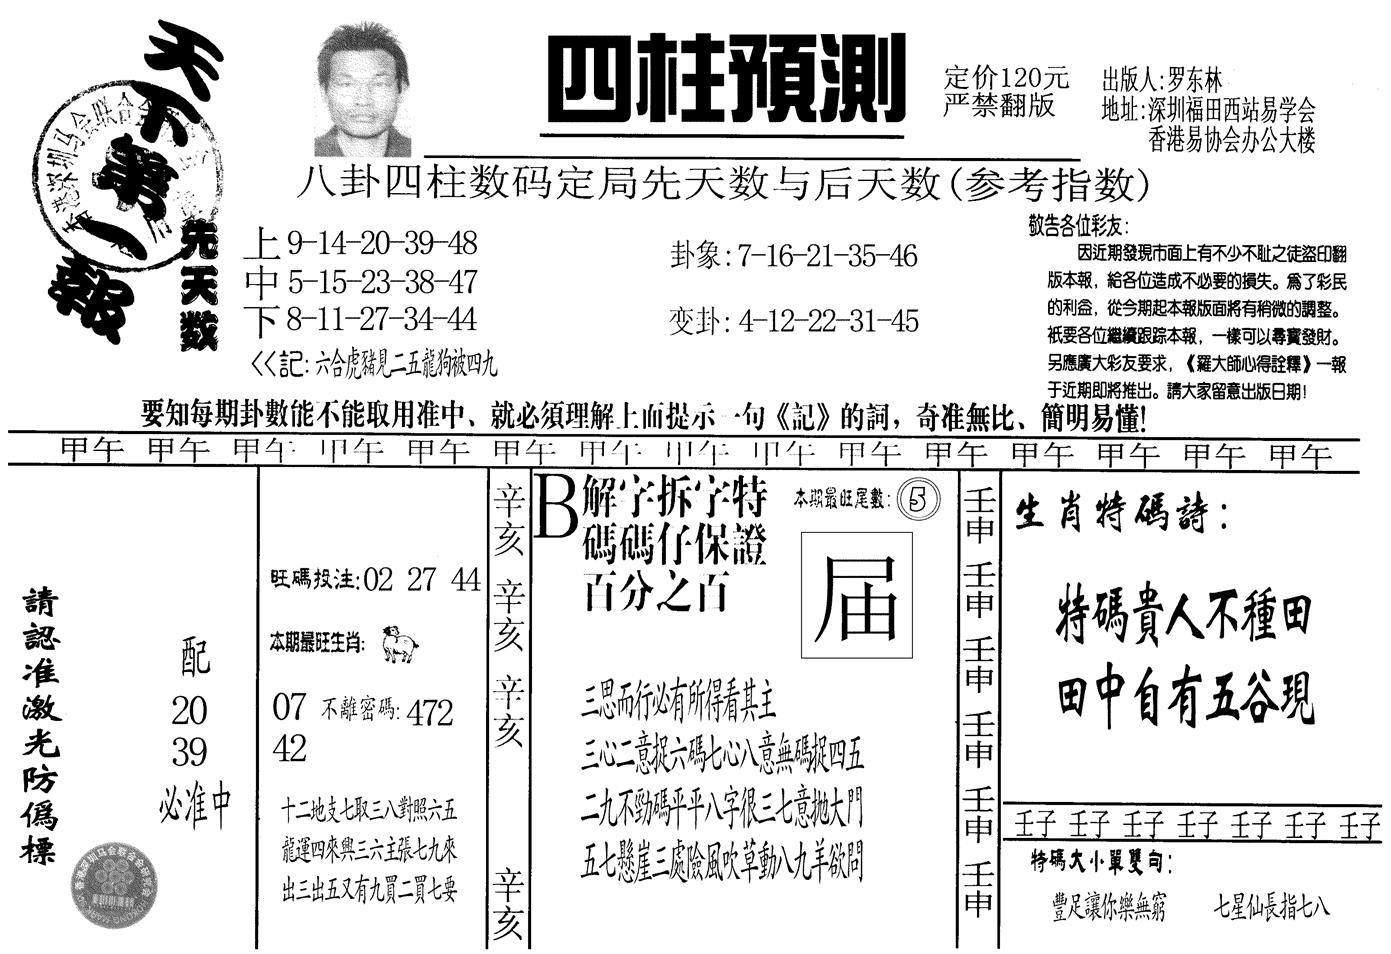 天下第一報
四柱預測
定价120元
严禁翻版
出版人:罗东林
地址:深圳福田西站易学会
香港易协会办公大楼
八卦四柱数码定局先天数与后天数(参考指数)
先天数
上 9-14-20-39-48
中 5-15-23-38-47
下 8-11-27-34-44
<<記: 六合虎豬見二五龍狗被四九
卦象: 7-16-21-35-46
变卦: 4-12-22-31-45
敬告各位彩友:
因近期發現市面上有不少不恥之徒盜印翻
版本報，給各位造成不必要的損失。爲了彩民
的利益，從今期起本報版面將有稍微的調整。
衹要各位繼續跟踪本報，一樣可以尋寶發財。
另應廣大彩友要求，《羅大師心得詮釋》一報
于近期即將推出。請大家留意出版日期!
要知每期卦數能不能取用准中、就必須理解上面提示一句《記》的詞，奇准無比、簡明易懂!
甲午 甲午 甲午 甲午 甲午 甲午 甲午 甲午 甲午 甲午 甲午 甲午 甲午 甲午 甲午
請認准激光防僞標
配
20
39
必准中
旺碼投注:02 27 44
本期最旺生肖:
07 不離密碼: 472
42
十二地支七取三八對照六五
龍運四來興三六主張七九來
出三出五又有九買二買七要
辛亥 辛亥 辛亥 辛亥
B解字拆字特
碼碼仔保證
百分之百
本期最旺尾數: 5
届
三思而行必有所得看其主
三心二意捉六碼七心八意無碼捉四五
二九不勁碼平平八字很三七意拋大門
五七懸崖三處險風吹草動八九羊欲問
壬申 壬申 壬申 壬申 壬申 壬申
生肖特碼詩:
特碼貴人不種田
田中自有五谷現
壬子 壬子 壬子 壬子 壬子 壬子 壬子
特碼大小單雙句:
豐足讓你樂無窮 七星仙長指七八